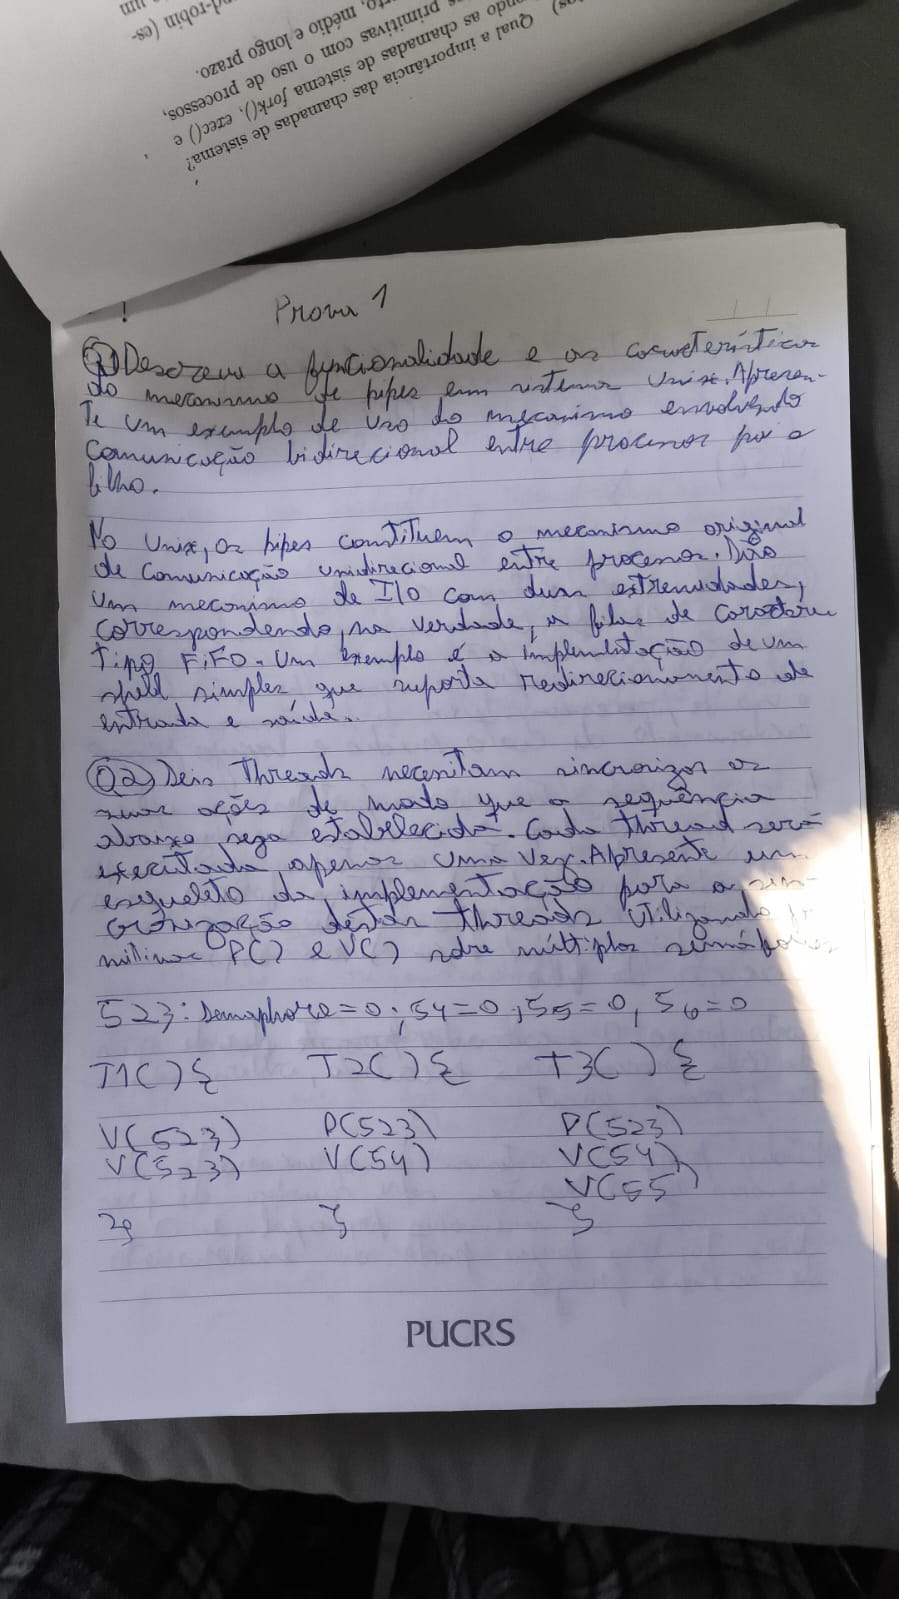 Qual a importância das chamadas de sistema?
ndo as chamadas de sistema fork(), exec() e
primitivas com o uso de processos,
rto, médio e longo prazo.
nd-robin (es-
um
!
Prova 1
Q1 Descreva a funcionalidade e as características
do mecanismo de pipes em sistemas Unix. Apresen-
te um exemplo de uso do mecanismo envolvendo
comunicação bidirecional entre processos pai e
filho.
No Unix, os pipes constituem o mecanismo original
de comunicação unidirecional entre processos. São
um mecanismo de I/O com duas extremidades,
correspondendo, na verdade, a filas de caractere
tipo FiFO. Um exemplo é a implementação de um
shell simples que suporta redirecionamento de
entrada e saída.
Q2 Seis threads necessitam sincronizar as
suas ações de modo que a sequência
abaixo seja estabelecida. Cada thread será
executada apenas uma vez. Apresente um
esqueleto da implementação para a sin-
cronização destas threads utilizando
P() e V() sobre múltiplos semáforos
S23: Semaphore = 0; S4=0; S5=0, S6=0
T1() { T2() { T3() {
V(S23) P(S23) P(S23)
V(S23) V(S4) V(S4)
V(S5)
} } }
PUCRS